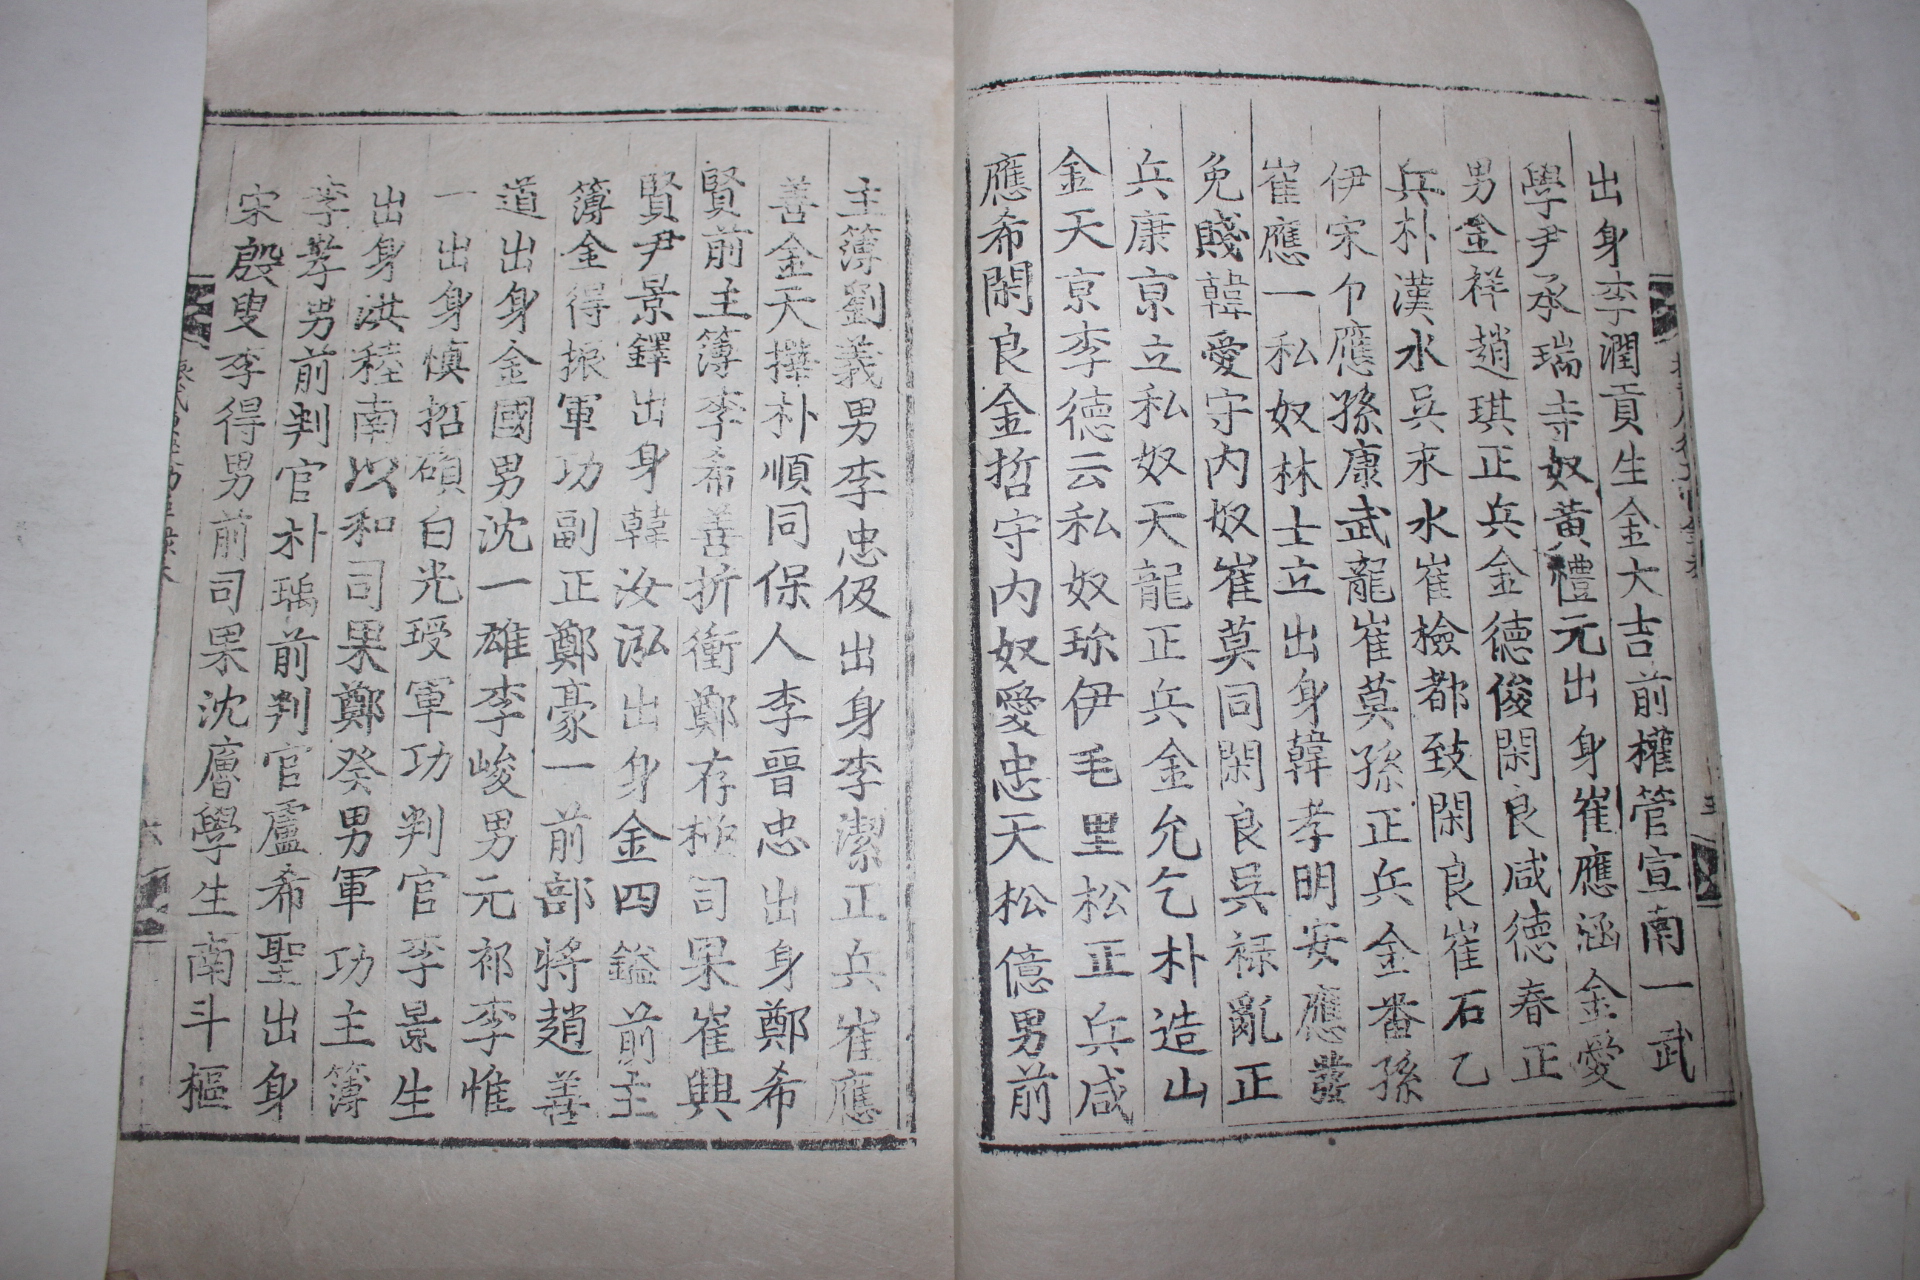 出身李潤貢生金大吉前權管宣南一武
學尹承瑞寺奴黃禮元出身崔應涵金愛
男金祥趙琪正兵金德俊閑良咸德春正
兵朴漢水吳來水崔檢都致閑良崔石乙
伊宋卜應孫康武龍崔莫孫正兵金番孫
崔應一私奴林士立出身韓孝明安應發
免賤韓愛守內奴崔莫同閑良吳祿亂正
兵康京立私奴天龍正兵金允乞朴造山
金天京李德云私奴珎伊毛里松正兵咸
應希閑良金哲守內奴愛忠天松億男前
主簿劉義男李忠伋出身李潔正兵崔應
善金天擇朴順同保人李晉忠出身鄭希
賢前主簿李希善折衝鄭存極司果崔興
賢尹景鐸出身韓汝泓出身金四鎰前主
簿金得振軍功副正鄭豪一前部將趙善
道出身金國男沈一雄李峻男元祁李惟
一出身慎招碩白光玹軍功判官李景生
出身洪稑南以和司果鄭癸男軍功主簿
李孝男前判官朴瑀前判官盧希聖出身
宋殷叟李得男前司果沈應學生南斗樞
六